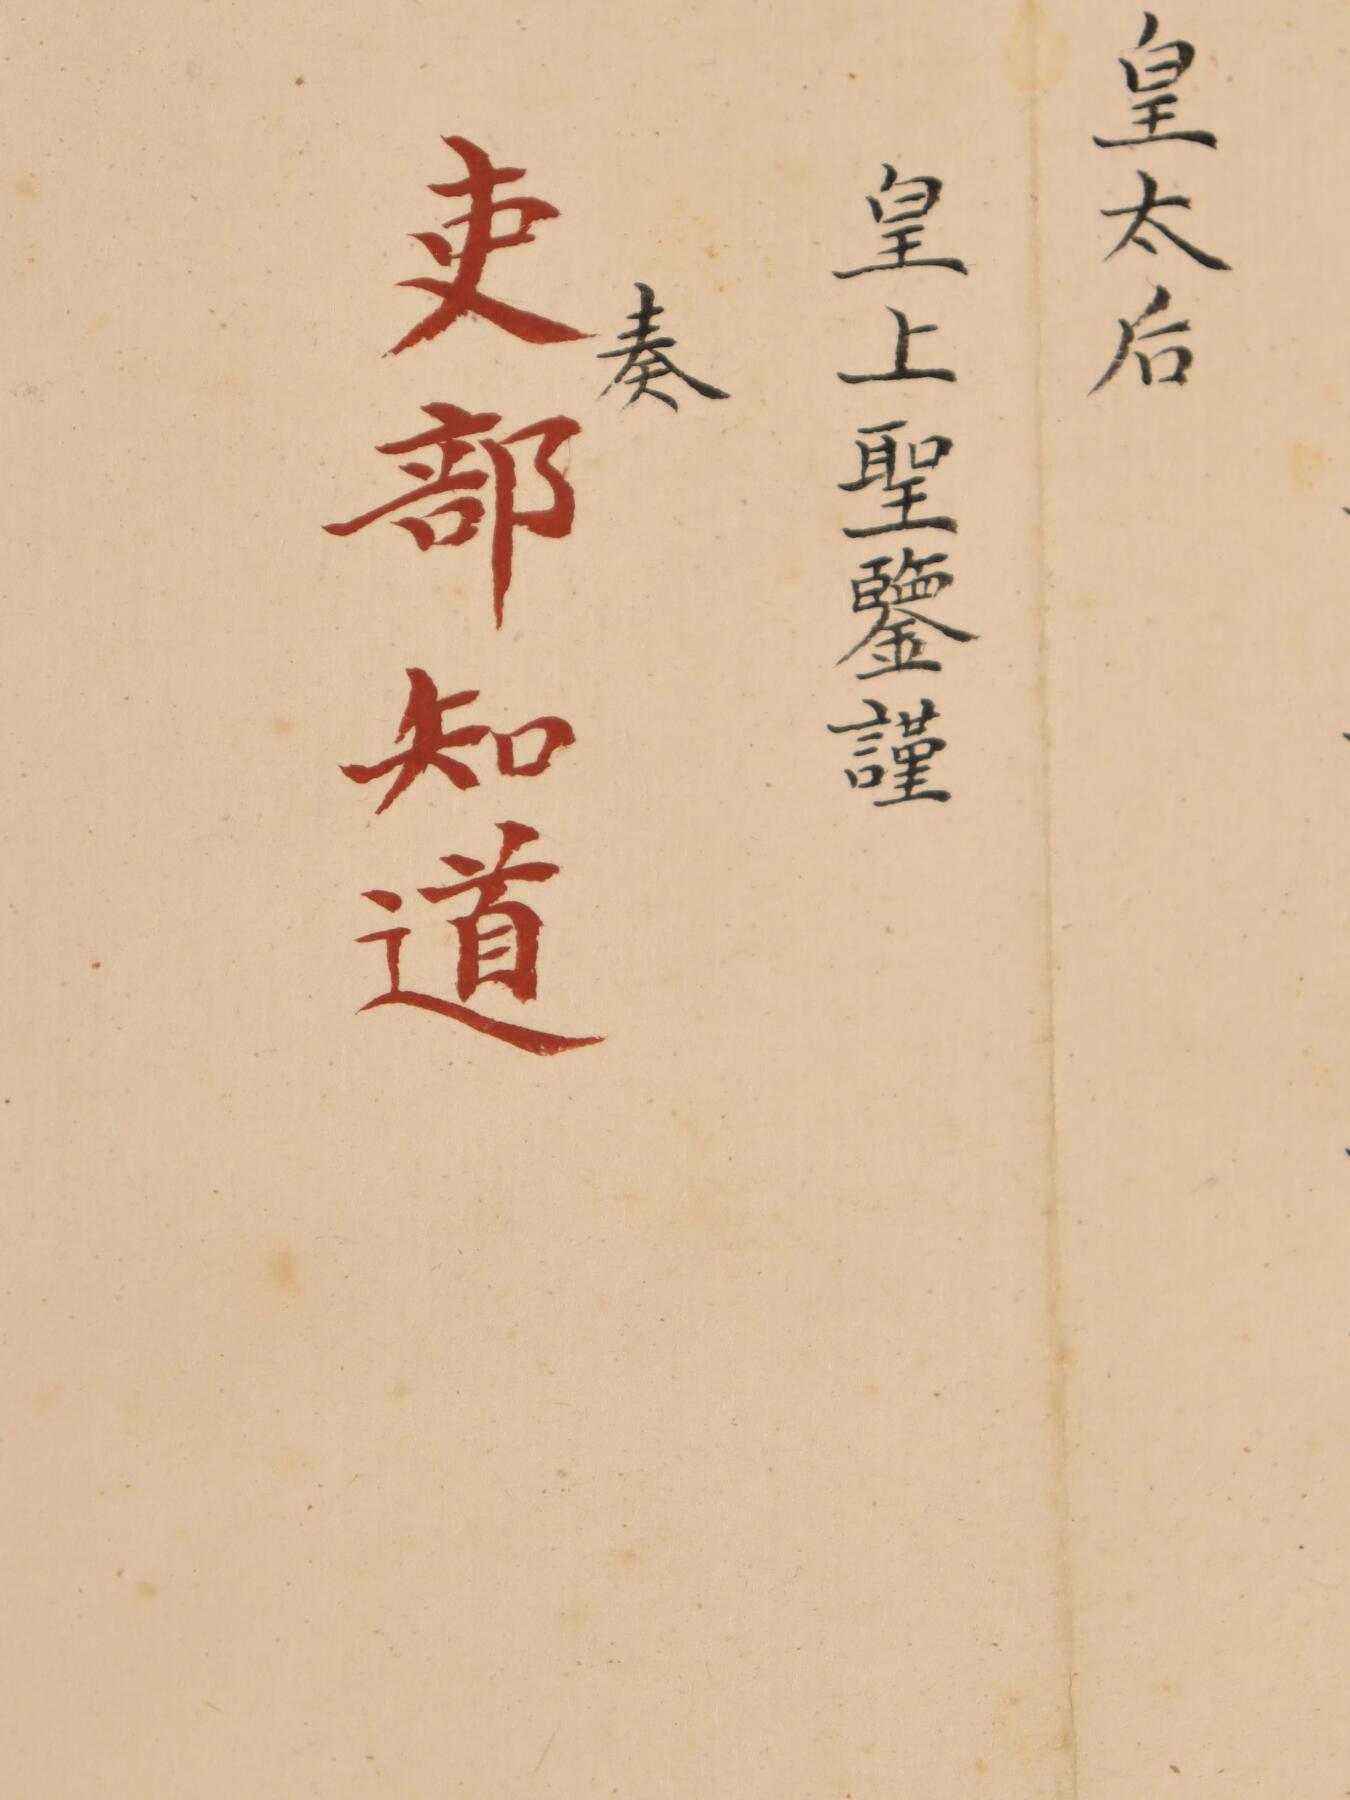 皇太后
皇上聖鑒謹
奏
吏部知道